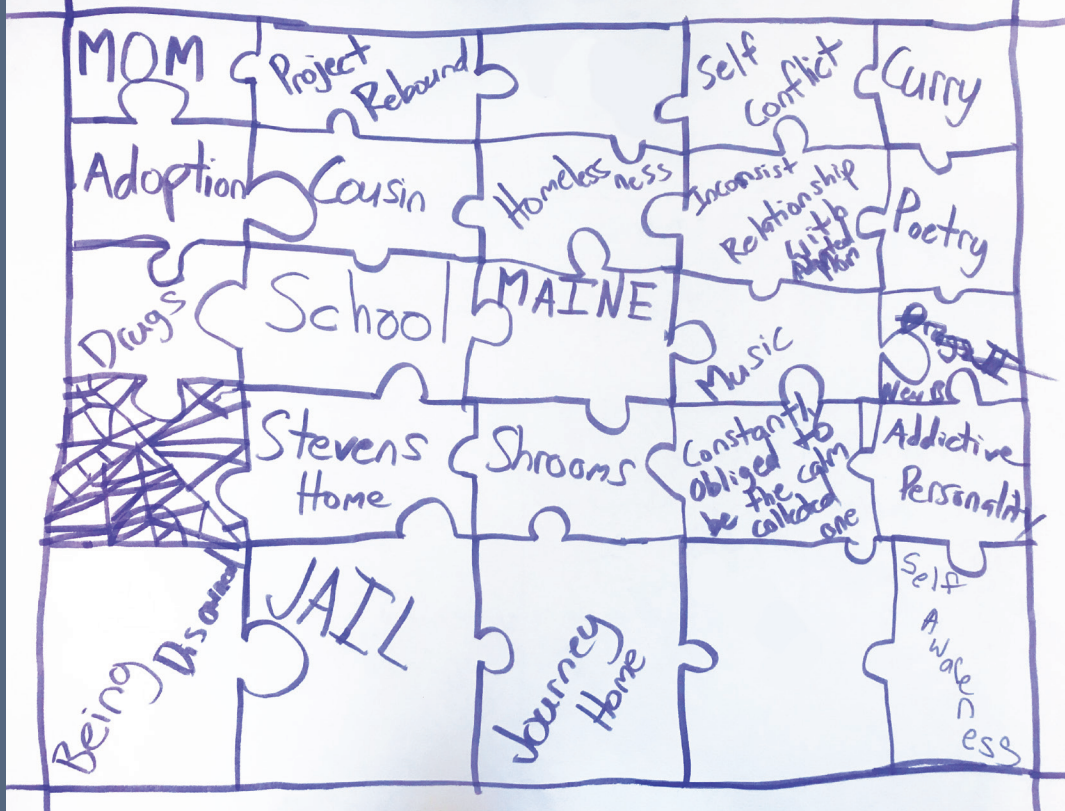 MOM
Project
Rebound
Self
Conflict
Curry
Adoption
Cousin
Homelessness
Inconsist
Relationship
With
Adopted
Mom
Poetry
Drugs
School
MAINE
Music
Stevens
Home
Shrooms
Constantly
obliged to
be the calm
collected
one
Addictive
Personality
Being Disowned
JAIL
Journey
Home
Self
Awareness